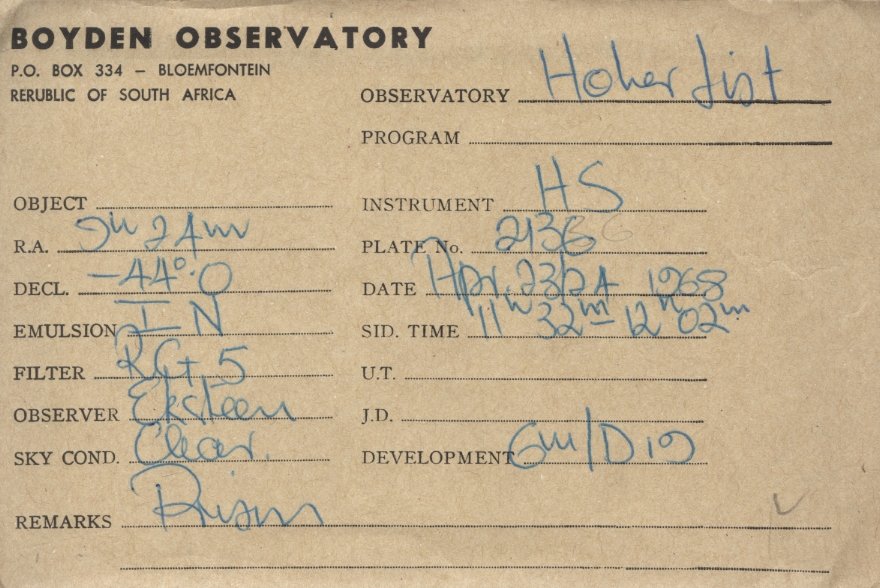 BOYDEN OBSERVATORY
P.O. BOX 334 – BLOEMFONTEIN
RERUBLIC OF SOUTH AFRICA
OBSERVATORY Hoher List
PROGRAM
OBJECT
INSTRUMENT HS
R.A. 9h 24m
PLATE No. 2136 6
DECL. -44°.0
DATE Apr. 23/24 1968
EMULSION I-N
SID. TIME 11h 32m – 12h 02m
FILTER RG+5
U.T.
OBSERVER Eksteen
J.D.
SKY COND. Clear.
DEVELOPMENT 6m/D19
REMARKS Prism